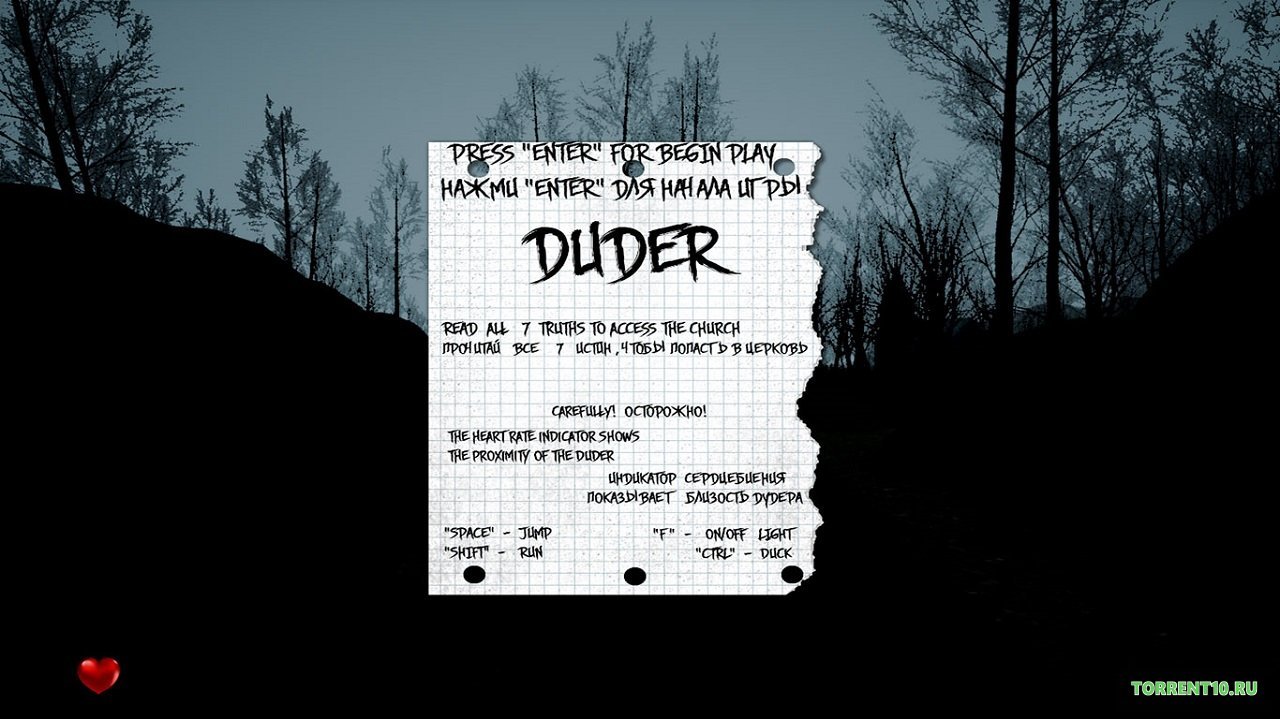 PRESS "ENTER" FOR BEGIN PLAY
НАЖМИ "ENTER" ДЛЯ НАЧАЛА ИГРЫ
DUDER
READ ALL 7 TRUTHS TO ACCESS THE CHURCH
ПРОЧИТАЙ ВСЕ 7 ИСТИН, ЧТОБЫ ПОПАСТЬ В ЦЕРКОВЬ
CAREFULLY! ОСТОРОЖНО!
THE HEART RATE INDICATOR SHOWS
THE PROXIMITY OF THE DUDER
ИНДИКАТОР СЕРДЦЕБИЕНИЯ
ПОКАЗЫВАЕТ БЛИЗОСТЬ DУДЕРА
"SPACE" - JUMP "F" - ON/OFF LIGHT
"SHIFT" - RUN "CTRL" - DUCK
TORRENT10.RU